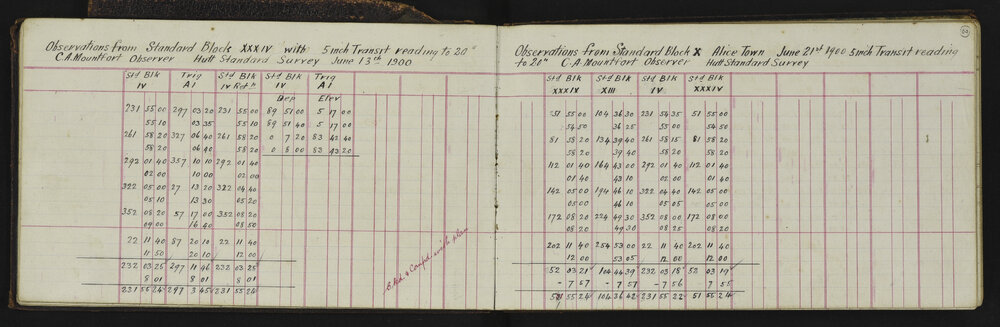 Observations from Standard Block XXXIV with 5 inch Transit reading to 20"
C.A. Mountfort Observer Hutt Standard Survey June 13th 1900
Std Blk IV Trig A1 Std Blk IV Retn Std Blk IV Trig A1
Dep Elev
231 55 00 297 03 20 231 55 00 89 51 00 5 17 00
55 10 03 35 55 10 89 51 40 5 17 00
261 58 20 327 06 40 261 58 20 0 7 20 83 42 40
58 20 06 40 58 20 0 8 00 83 43 20
292 01 40 357 10 10 292 01 40
02 00 10 00 02 00
322 05 00 27 13 20 322 04 40
05 10 13 30 05 20
352 08 20 57 17 00 352 08 20
09 00 16 40 08 50
22 11 40 87 20 10 22 11 40
11 50 20 10 12 00
232 03 25 297 11 46 232 03 25
8 01 8 01 8 01
231 55 24 297 3 45 231 55 24
Exd & Compd with plan
22
Observations from Standard Block X Alice Town June 21st 1900 5 inch Transit reading
to 20" C.A. Mountfort Observer Hutt Standard Survey
Std Blk XXXIX Std Blk XIII Std Blk IV Std Blk XXXIV
51 55 00 104 36 30 231 54 35 51 55 00
54 50 36 25 55 00 54 50
81 58 20 134 39 40 261 58 15 81 58 20
58 20 39 40 58 20 58 20
112 01 40 164 43 00 292 01 40 112 01 40
01 40 43 10 02 00 01 40
142 05 00 194 46 10 322 04 40 142 05 00
05 00 46 10 05 05 05 00
172 08 20 224 49 30 352 08 00 172 08 00
08 20 49 30 08 25 08 20
202 11 40 254 53 00 22 11 40 202 11 40
12 00 53 05 12 00 12 00
52 03 21 104 44 39 232 03 18 52 03 19
- 7 57 - 7 57 - 7 56 7 55
51 55 24 104 36 42 231 55 22 51 55 24